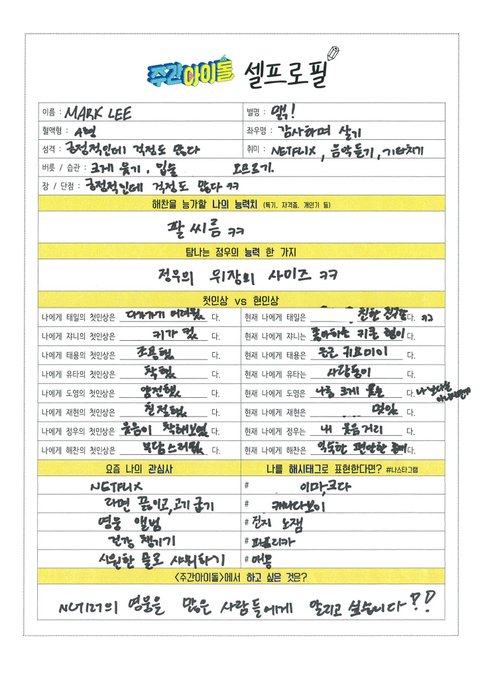 주간아이돌 셀프로필
이름 : MARK LEE
별명 : 맭!
혈액형 : A형
좌우명 : 감사하며 살기
성격 : 긍정적인데 걱정도 많다
취미 : NETFLIX, 음악듣기, 기타치기
버릇 / 습관 : 크게 웃기, 입술 오므르기.
장 / 단점 : 긍정적인데 걱정도 많다 ㅋㅋ
해찬을 능가할 나의 능력치 (특기, 자격증, 개인기 등)
팔씨름 ㅋㅋ
탐나는 정우의 능력 한 가지
정우의 위장의 사이즈 ㅋㅋ
첫인상 vs 현인상
나에게 태일의 첫인상은 다가가기 어려웠 다.
현재 나에게 태일은 친한 친구같 다. ㅋㅋ
나에게 쟈니의 첫인상은 키가 컸 다.
현재 나에게 쟈니는 좋아하는 키큰 형이 다.
나에게 태용의 첫인상은 조용했 다.
현재 나에게 태용은 은근 귀요미이 다.
나에게 유타의 첫인상은 착했 다.
현재 나에게 유타는 사랑둥이 다.
나에게 도영의 첫인상은 얌전했 다.
현재 나에게 도영은 나름 크게 웃는 다.
나에게 재현의 첫인상은 친절했 다.
현재 나에게 재현은 멋있 다.
나에게 정우의 첫인상은 웃음이 착해보였 다.
현재 나에게 정우는 내 웃음거리 다.
나에게 해찬의 첫인상은 부담스러웠 다.
현재 나에게 해찬은 익숙한 편안한 존재 다.
요즘 나의 관심사
나를 해시태그로 표현한다면? #나스타그램
NETFLIX
# 이마,크다
라면 끓이고, 고기 굽기
# 캐나다보이
영웅 앨범
# 진지 노잼
건강 챙기기
# 파프리카
시원한 물로 샤워하기
# 애몽
<주간아이돌>에서 하고 싶은 것은?
NCT127의 영웅을 많은 사람들에게 알리고 싶습니다!!